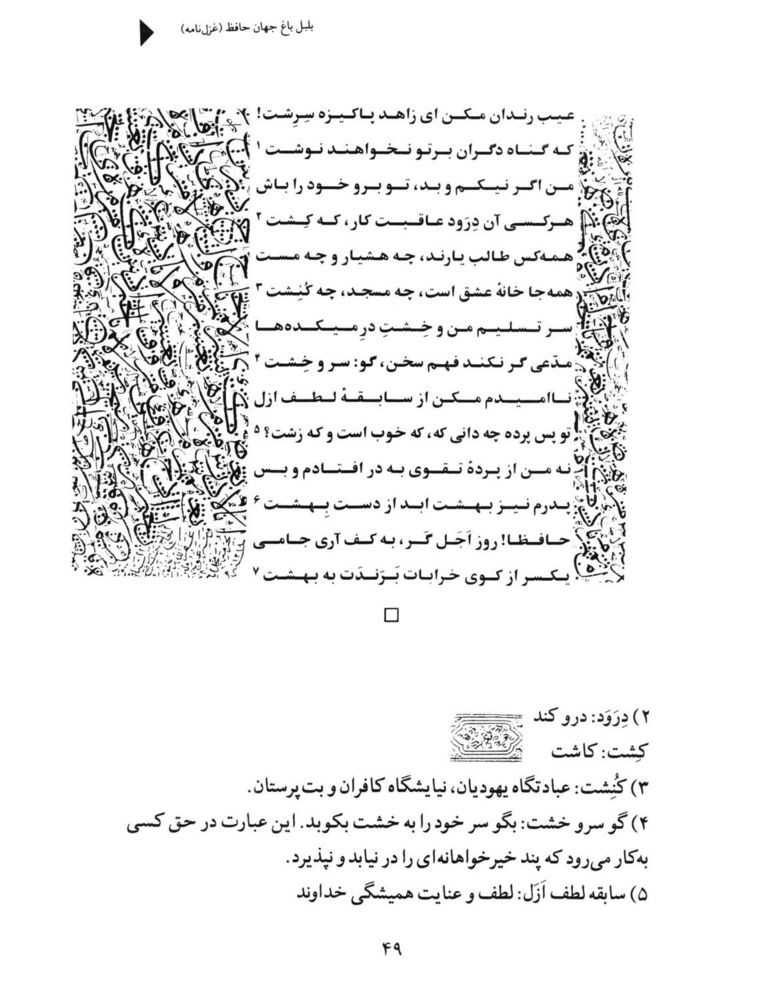 بلبل باغ جهان حافظ (غزل‌نامه)
عیب رندان مکن ای زاهد پاکیزه سِرِشت!
که گناه دگران بر تو نخواهند نوشت ۱
من اگر نیکم و بد، تو برو خود را باش
هرکسی آن دِرَود عاقبت کار، که کِشت ۲
همه‌کس طالب یارند، چه هشیار و چه مست
همه‌جا خانهٔ عشق است، چه مسجد، چه کُنِشت ۳
سر تسلیم من و خِشتِ درِ میکده‌ها
مدّعی گر نکند فهم سخن، گو: سر و خِشت ۴
ناامیدم مکن از سابقهٔ لطف ازل
تو پس پرده چه دانی که، که خوب است و که زشت؟ ۵
نه من از پردهٔ تقوی به در افتادم و بس
پدرم نیز بهشت ابد از دست بِهِشت ۶
حافظا! روز اَجَل گر، به کف آری جامی
یکسر از کوی خرابات بَرَندَت به بهشت ۷
۲) دِرَوَد: درو کند
کِشت: کاشت
۳) کُنِشت: عبادتگاه یهودیان، نیایشگاه کافران و بت‌پرستان.
۴) گو سر و خشت: بگو سر خود را به خشت بکوبد. این عبارت در حق کسی
به‌کار می‌رود که پند خیرخواهانه‌ای را در نیابد و نپذیرد.
۵) سابقه لطف اَزَل: لطف و عنایت همیشگی خداوند
۴۹